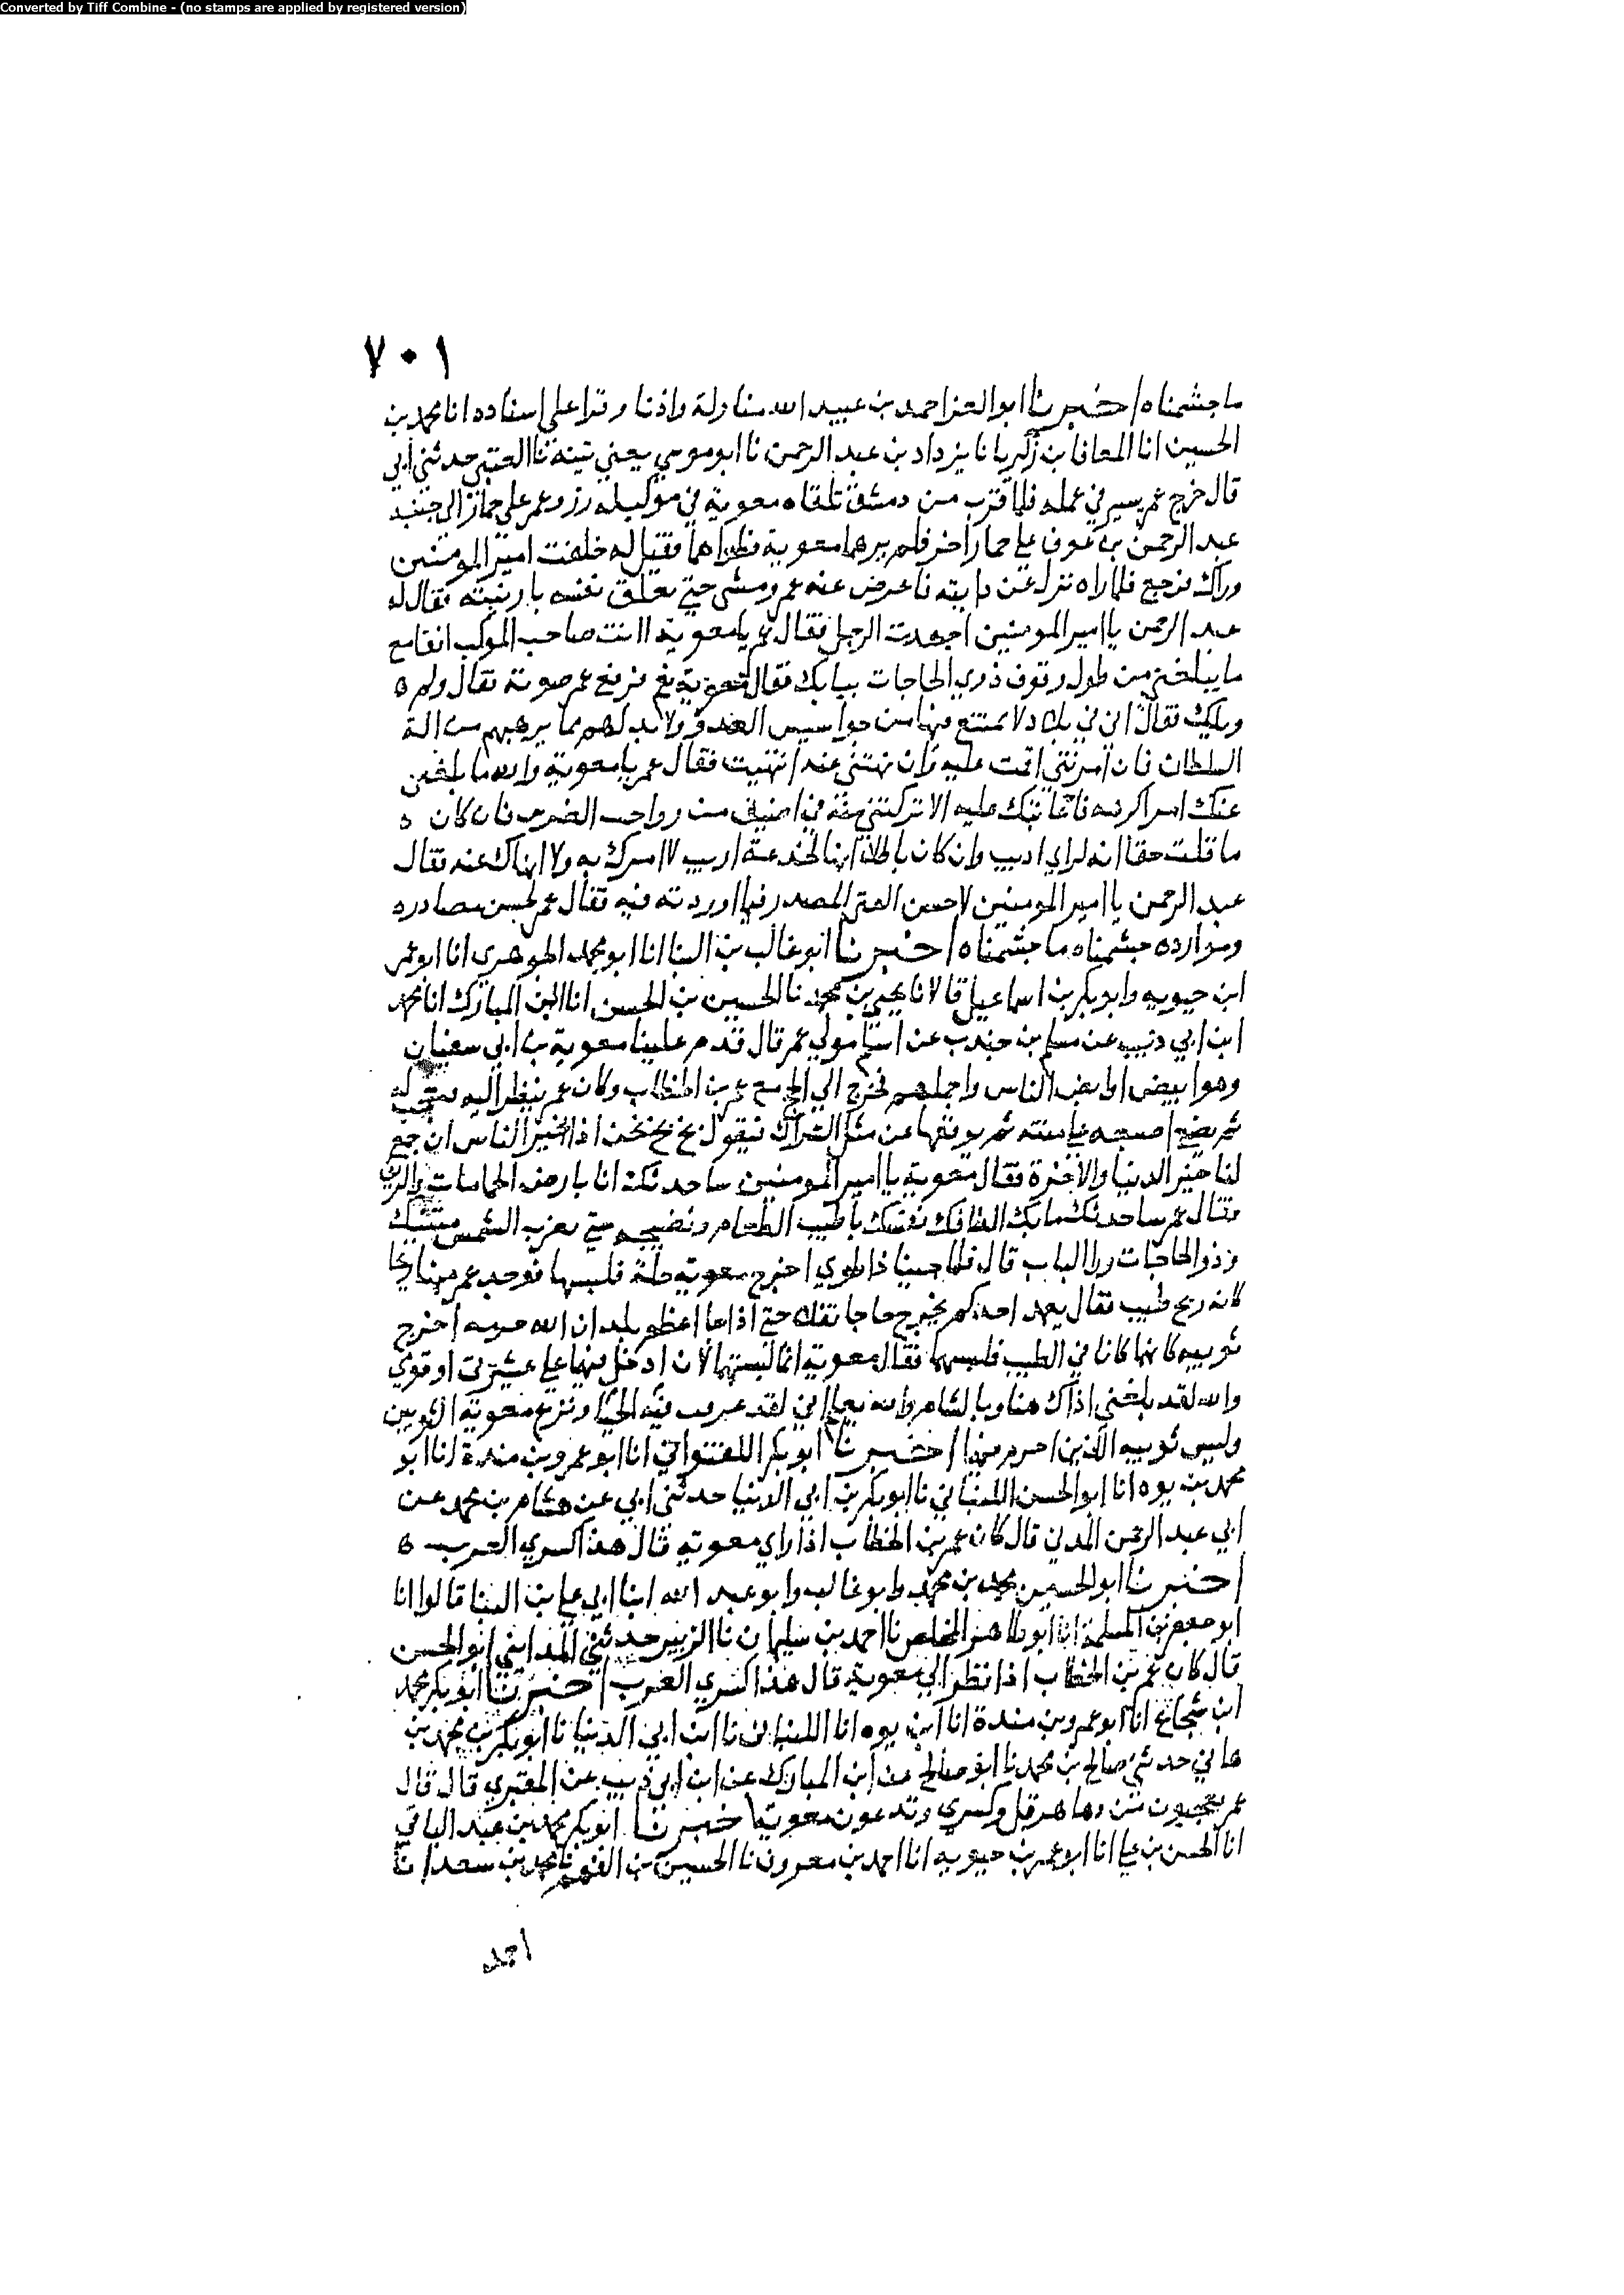 Converted by Tiff Combine - (no stamps are applied by registered version)
٧٠١
ما جشمناه اخبرنا ابو العز احمد بن عبيد الله مناولة واذنا وقرا علي اسناده انا محمد بن
الحسين انا المعافا بن زكريا نا يزداد بن عبد الرحمن نا ابو موسي يعني تينة نا العتبي حدثني ابي
قال خرج عمر يسير في عمله فلما قرب من دمشق تلقاه معوية في موكب له رز وعمر على حمار الى جنبه
عبد الرحمن بن عوف علي حمار اخر فلم يرهما معوية فطواهما فقيل له خلفت امير المومنين
وراك فرجع فلما راه نزل عن دابته فاعرض عنه عمر ومشى حتي تعلق نفسه بارنبته فقال له
عبد الرحمن يا امير المومنين اجهدت الرجل فقال عمر يا معوية اانت صاحب الموكب انفا مع
ما يبلغني من طول وقوف ذوي الحاجات ببابك فقال معوية نعم فرفع عمر صوته فقال ولم ه
ويلك فقال اني في بلاد لا يمتنع فيها من جواسيس العدو ولا بد لهم مما يرهبهم من الة
السلطان فان امرتني اقمت عليه وان نهيتني عنه انتهيت فقال عمر يا معوية والله ما بلغني
عنك امر اكرهه فاعاتبك عليه الا تركتني منه في اضيق من رواجب الضرس فان كان ه
ما قلت حقا انه لراي اديب وان كان باطلا انها لخدعة اريب لا امرك به ولا انهاك عنه فقال
عبد الرحمن يا امير المومنين لاحسن الفتى المصدر فيما اوردته فيه فقال عمر لحسن مصادره
وموارده جشمناه ما جشمناه اخبرنا ابو غالب بن البنا انا ابو محمد الجوهري انا ابو عمر
ابن حيويه وابو بكر بن اسماعيل قالا نا يحيى بن محمد نا الحسين بن الحسن انا ابن المبارك انا محمد
ابن ابي ذئيب عن مسلم بن جندب عن اسلم مولي عمر قال قدم علينا معوية بن ابي سفيان
وهو ابيض او ابض الناس واجملهم فخرج الي الحج مع عمر بن الخطاب وكان عمر ينظر اليه فيعجب له
ثم يضع اصبعه علي متنه ثم يرفعها عن مثل الشراك فيقول بخ بخ نحن اذا خير الناس ان جمع
لنا خير الدنيا والاخرة فقال معوية يا امير المومنين ساحدثك انا بارض الحمامات والريف
فقال عمر ساحدثك ما بك الطافك نفسك باطيب الطعام وتصبحه حتي يضرب الشمس متنيك
وذو الحاجات ورا الباب قال فلما جينا ذا طوي اخرج معوية حلة فلبسها فوجد عمر منها ريحا
كانه ريح طيب فقال يعمد احدكم يخرج حاجا تفلا حتي اذا جا اعظم بلدان الله حرمه اخرج
ثوبيه كانهما كانا في الطيب فلبسهما فقال معوية انما لبستهما لان ادخل فيهما علي عشيرتي او قومي
والله لقد بلغني اذاك هنا وبالشام والله يعلم اني لقد عرفت فيه الحيا ونزع معوية الثوبين
ولبس ثوبيه الذين احرم فيهما اخبرنا ابو بكر اللفتواني انا ابو عمرو بن مندة انا ابو
محمد بن يوه انا ابو الحسن اللنباني نا ابو بكر بن ابي الدنيا حدثني ابي عن هشام بن محمد عن
ابي عبد الرحمن المدني قال كان عمر بن الخطاب اذا راي معوية قال هذا كسري العرب ه
اخبرنا ابو الحسين محمد بن محمد وابو غالب وابو عبد الله ابنا ابي علي بن البنا قالوا انا
ابو جعفر بن المسلمة انا ابو طاهر المخلص نا احمد بن سليمان نا الزبير حدثني المدايني ابو الحسن
قال كان عمر بن الخطاب اذا نظر الي معوية قال هذا كسري العرب اخبرنا ابو بكر محمد
ابن شجاع انا ابو عمرو بن مندة انا ابن يوه انا اللنباني نا ابن ابي الدنيا نا ابو بكر بن محمد بن
هاني حدثني صالح بن محمد نا ابو صالح عن ابن المبارك عن ابن ابي ذيب عن المقبري قال قال
عمر تعجبون من دها هرقل وكسري وتدعون معوية اخبرنا ابو بكر محمد بن عبد الباقي
انا الحسن بن علي انا ابو عمر بن حيويه انا احمد بن معروف نا الحسين بن الفهم نا محمد بن سعد انا
احمد